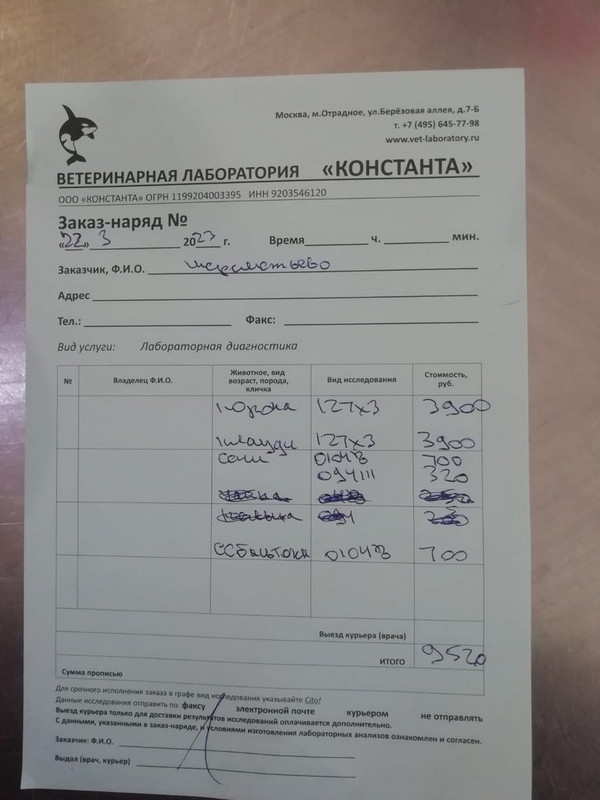 Москва, м.Отрадное, ул.Берёзовая аллея, д.7-Б
т. +7 (495) 645-77-98
www.vet-laboratory.ru
ВЕТЕРИНАРНАЯ ЛАБОРАТОРИЯ «КОНСТАНТА»
ООО «КОНСТАНТА» ОГРН 1199204003395 ИНН 9203546120
Заказ-наряд №
«22» 3 2023 г. Время ч. мин.
Заказчик, Ф.И.О.
Адрес
Тел.: Факс:
Вид услуги: Лабораторная диагностика
№ Владелец Ф.И.О. Животное, вид возраст, порода, кличка Вид исследования Стоимость, руб.
127х3 3900
127х3 3900
Сочи 700
320
700
Выезд курьера (врача)
ИТОГО 9520
Сумма прописью
Для срочного исполнения заказа в графе вид исследования указывайте Cito!
Данные исследования отправить по: факсу электронной почте курьером не отправлять
Выезд курьера только для доставки результатов исследований оплачивается дополнительно.
С данными, указанными в заказ-наряде, и условиями изготовления лабораторных анализов ознакомлен и согласен.
Заказчик: Ф.И.О.
Выдал (врач, курьер)